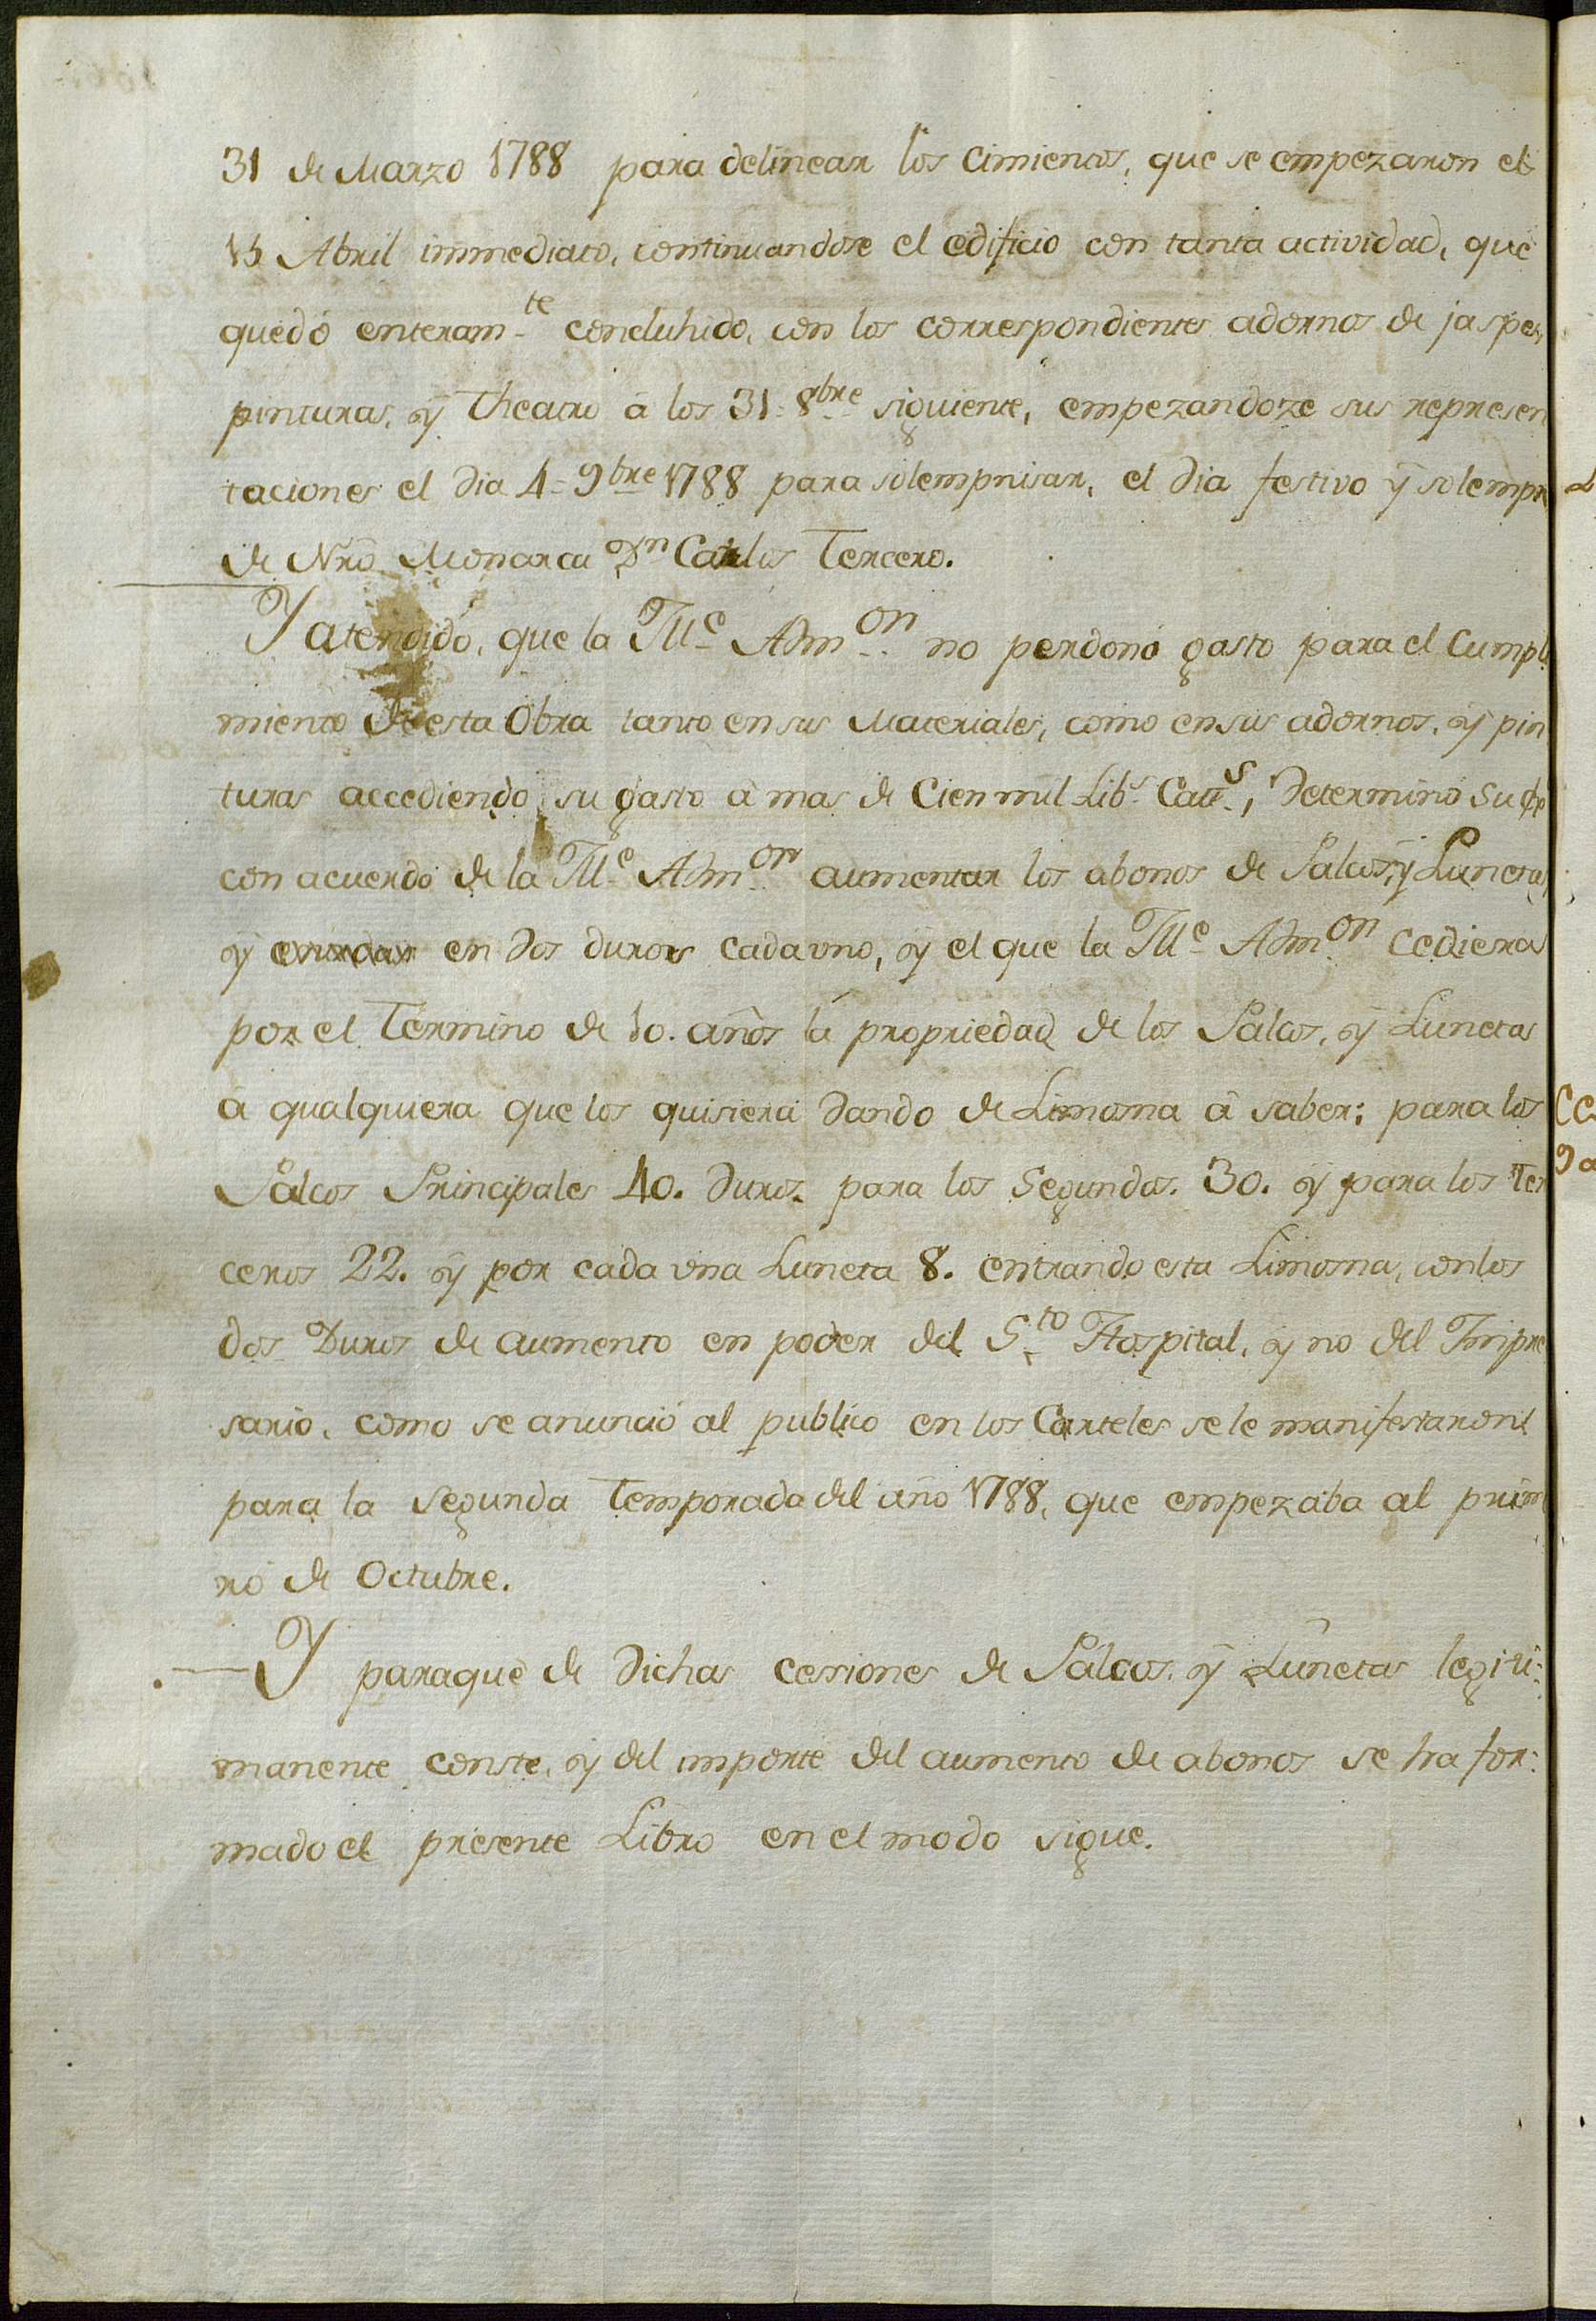 31 de Marzo 1788 para delinear los Cimientos, que se empezaron el
15 Abril immediato, continuandose el edificio con tanta actividad, que
quedó enteram.te concluhido, con los correspondientes adornos de jaspes,
pinturas, ÿ Theatro â los 31 8bre siguiente, empezandoze sus represen
taciones el dia 4 9bre 1788 para solempnisar, el dia festivo ÿ solempn
de Nrô Monarca Dn Carlos Tercero.
Y atendido, que la Ille Admon no perdonó gasto para el Cumpli
miento de esta Obra tanto en sus Materiales, como en sus adornos, ÿ pin
turas accediendo su gasto â mas de Cien mil Libs Cats, Determinó Su
con acuerdo de la Ille Admon aumentar los abonos de Palcos, ÿ Lunetas
ÿ en dos duros cada uno, ÿ el que la Ille Admon Cediera
por el Termino de 10. años la propriedad de los Palcos, ÿ Lunetas
â qualquiera que los quisiera Dando de Limosna â saber; para los
Palcos Principales 40. Duros para los Segundos. 30. ÿ para los Ter
ceros 22. ÿ por cada una Luneta 8. entrando esta Limosna, con los
dos Duros de aumento en poder del Sto Hospital, ÿ no del Impre
sario, como se anunció al publico en los Carteles se le manifestaron
para la Segunda Temporada del año 1788, que empezaba al prim
ro de Octubre.
Y paraque de Dichas cessiones de Palcos, ÿ Lunetas legiti:
manente conste, ÿ del importe del aumento de abonos se ha for:
mado el presente Libro en el modo sigue.